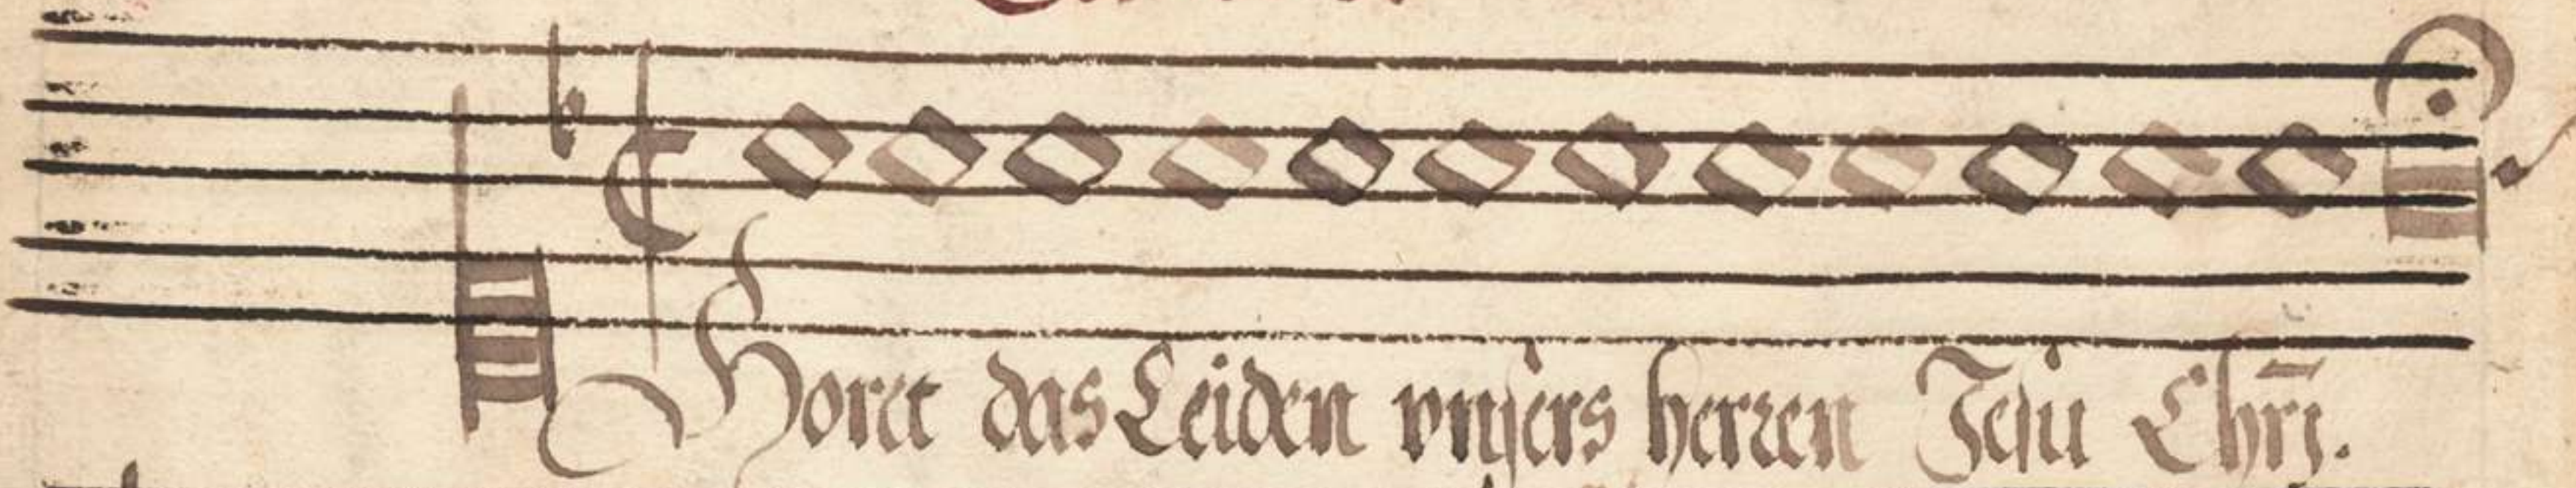 Horet das Leiden vnsers herren Jesu Chrj.